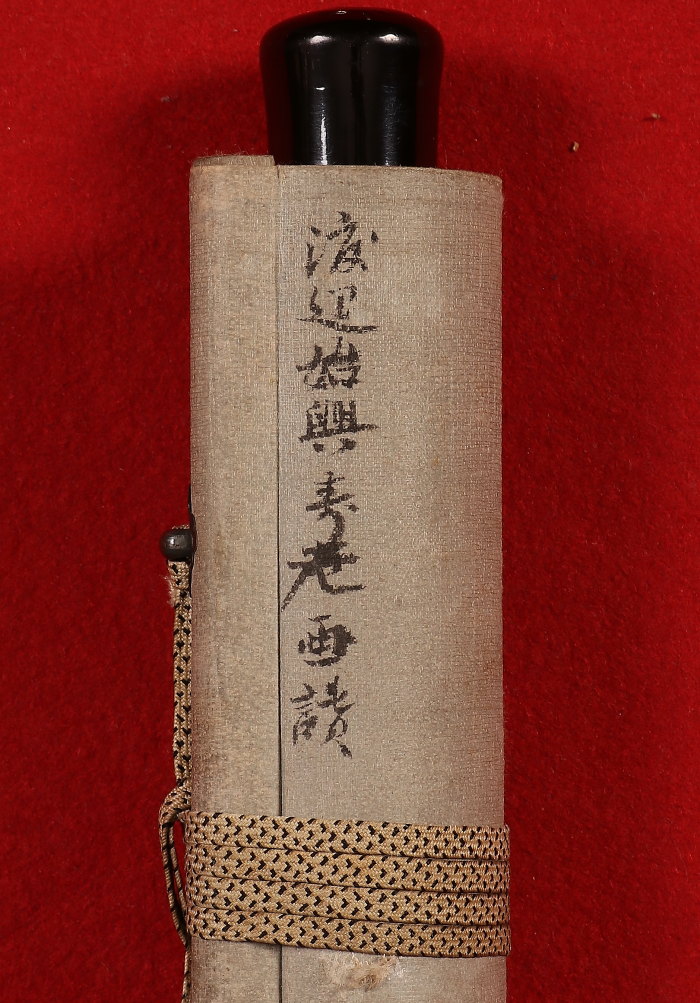 渡辺始興寿老画讃